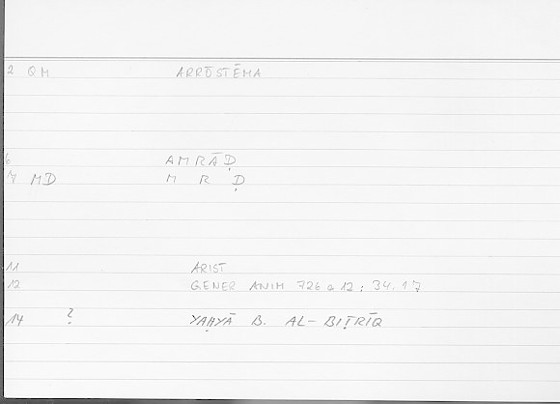 2 QM ARRŌSTĒMA
6 AMRĀḌ
7 MD M R Ḍ
11 ARIST
12 GENER ANIM 726 a 12 ; 34.17
14 ? YAḤYĀ B. AL-BIṬRĪQ